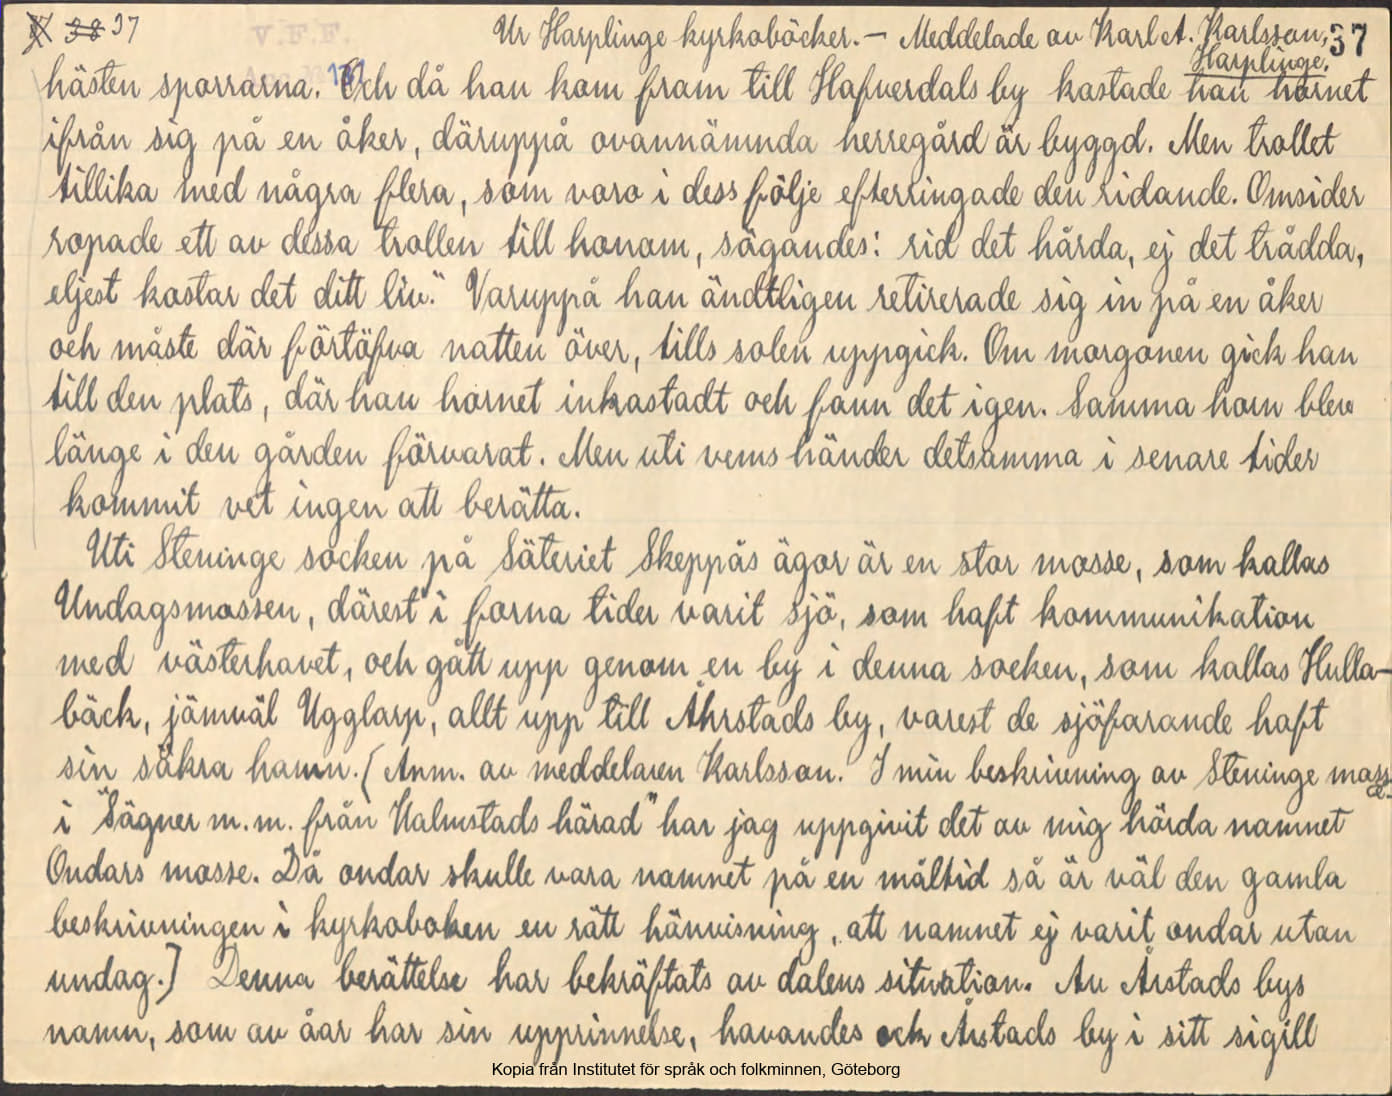 37 Ur Harplinge kyrkoböcker. — Meddelade av Karl A. Karlsson, 37
V.F.F. Harplinge.
hästen sporrarna. Och då han kom fram till Hafverdals by kastade han hornet
ifrån sig på en åker, däruppå ovannämnda herregård är byggd. Men trollet
tillika med några flera, som voro i dess följe efterringade den ridande. Omsider
ropade ett av dessa trollen till honom, sägandes: rid det hårda, ej det trådda,
eljest kostar det ditt liv." Varuppå han ändtligen retirerade sig in på en åker
och måste där förtöfva natten över, tills solen uppgick. Om morgonen gick han
till den plats, där han hornet inkastadt och fann det igen. Samma horn blev
länge i den gården förvarat. Men uti vems händer detsamma i senare tider
kommit vet ingen att berätta.
Uti Steninge socken på Säteriet Skeppås ägor är en stor mosse, som kallas
Undagsmossen, därest i forna tider varit sjö, som haft kommunikation
med västerhavet, och gått upp genom en by i denna socken, som kallas Hulla-
bäck, jämväl Ugglarp, allt upp till Åhrstads by, varest de sjöfarande haft
sin säkra hamn. (Anm. av meddelaren Karlsson. I min beskrivning av Steninge mosse
i "Sägner m.m. från Halmstads härad" har jag uppgivit det av mig hörda namnet
Ondars mosse. Då ondar skulle vara namnet på en måltid så är väl den gamla
beskrivningen i kyrkoboken en rätt hänvisning, att namnet ej varit ondar utan
undag.] Denna berättelse har bekräftats av dalens situation. Av Årstads bys
namn, som av åar har sin upprinnelse, havandes ock Årstads by i sitt sigill
Kopia från Institutet för språk och folkminnen, Göteborg